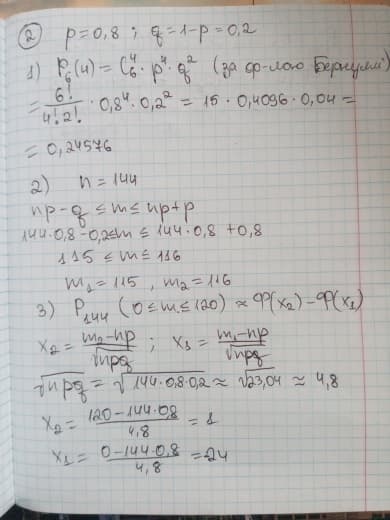 ② p=0,8 ; q=1-p=0,2
1) P₆(4) = C₆⁴ · p⁴ · q² (за ф-лою Бернуллі)
= 6!/4!2! · 0,8⁴ · 0,2² = 15 · 0,4096 · 0,04 =
= 0,24576
2) n = 144
np-q ≤ m ≤ np+p
144·0,8-0,2≤m ≤ 144·0,8 +0,8
115 ≤ m ≤ 116
m₁ = 115 , m₂ = 116
3) P₁₄₄ (0 ≤ m ≤ 120) ≈ Ф(x₂) - Ф(x₁)
x₂ = m₂-np/√npq ; x₁ = m₁-np/√npq
√npq = √144·0,8·0,2 ≈ √23,04 ≈ 4,8
x₂ = 120-144·0,8/4,8 = 1
x₁ = 0-144·0,8/4,8 = -24